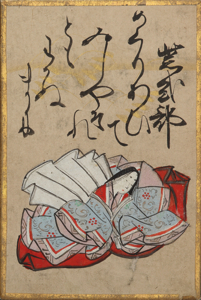 紫式部
めくりあひて
みしやそれ
ともわかぬ
まに